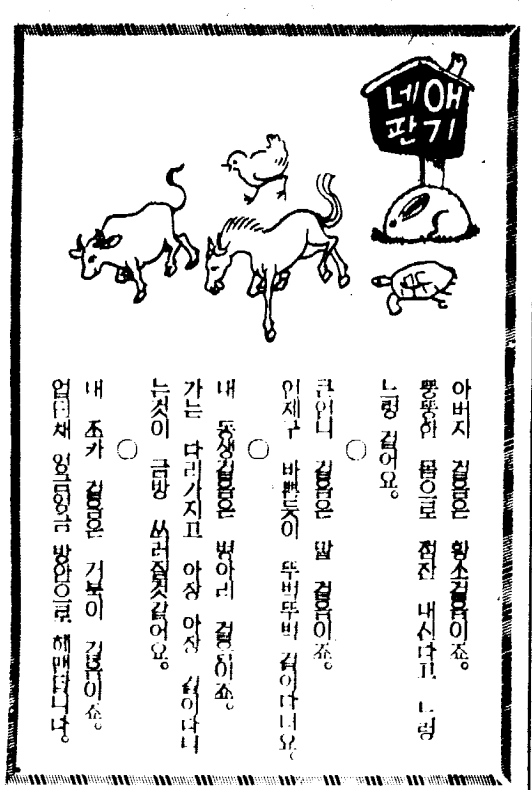 애기
네판
아버지 걸음은 황소걸음이죠。
뚱뚱한 몸으로 점잔 내신다고 느렁
느렁 걸어요。
○
큰언니 걸음은 말 걸음이죠。
언제구 바뿐듯이 뚜벅뚜벅 걸어다녀요。
○
내 동생걸음은 병아리 걸음이죠。
가는 다리가지고 아장 아장 걸어다니
는것이 금방 쓰러질것같어요。
○
내 조카 걸음은 거북이 걸음이죠。
업딘채 엉금엉금 방안으로 헤맨답니다。